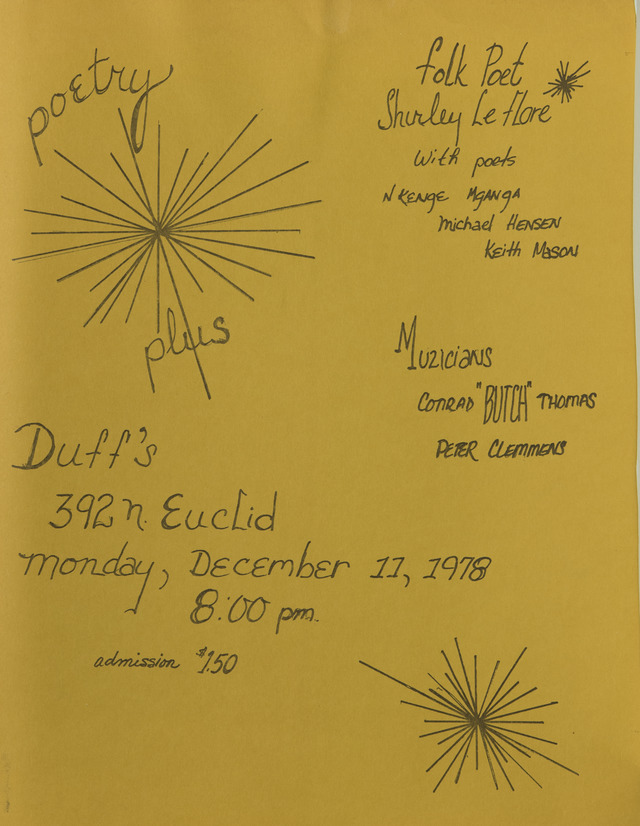 poetry
plus
folk Poet
Shirley LeFlore
With poets
NKENGE MGANGA
Michael HENSEN
Keith MASON
MUZICIANS
CONRAD "BUTCH" THOMAS
PETER CLEMMENS
Duff's
392 n. Euclid
monday, DECEMBER 11, 1978
8:00 pm.
admission $1.50